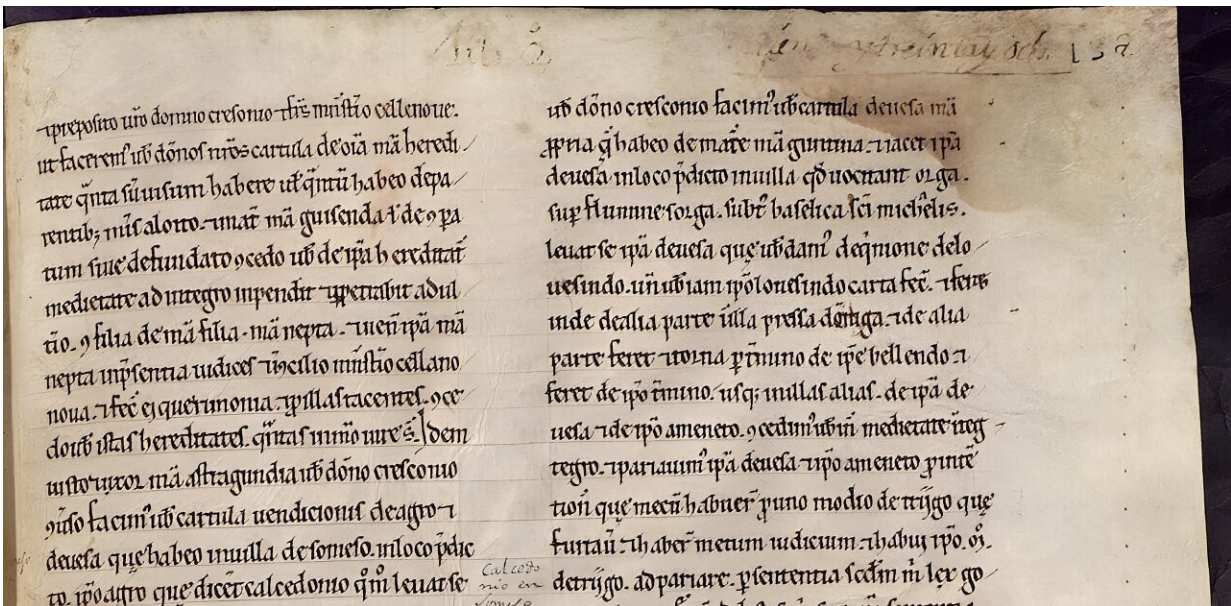 ⁊preposito uro domno cresonio ⁊ frs mnstrio cellenoue.
ut facerem ub donos nros cartula de oia ma heredi
tate qnta su uisum habere ut qntu habeo de pa
rentib; mis alotto ⁊ mat ma guisenda de ꝯpa
tum siue de fundato ꝯcedo ub de ipa hereditat
medietate ad integro
tio. ꝯ filia de ma filia ma nepta ⁊ uen ipa ma
nepta inpsentia iudices ⁊ incilio mnstrio cellano
noua. ⁊ fec ei querimonia ⁊ p illas tacentes. ꝯce
do istas hereditates. qntas in uire s. Idem
iusto uxor ma astragundia ub dono cresconio
facim ub cartula uendicionis de agro ⁊
deuesa que habeo in uilla de someso. in loco pdic
to. ipo agro que dicet calcedonio leuat se
Calcedo
nio en
Someso
ciento y treinta y ocho 138
ub dono cresconio facim ub cartula deuesa ma
ppria q habeo de mate ma guntina ⁊ iacet ipa
deuesa in loco pdicto in uilla qd uocitant orga.
sup flumine sorga. subt baselica sci michelis.
leuat se ipa deuesa que ub dam de qmione de lo
uesindo. un ub iam ipo louesindo carta fec. ⁊ feret
inde de alia parte illa pressa domga. ⁊ de alia
parte feret ⁊ torna p tmino de ipe bellendo ⁊
feret de ipo tmino. usq; in illas alias. de ipa de
uesa ⁊ de ipo ameneto. ꝯcedim ub in medietate integ
tegro. ⁊ pariauim ipa deuesa ⁊ ipo ameneto p inte
tion que mecu habuer p uno modio de trijgo que
furtau ⁊ haber mecum iudicium ⁊ habuj ipo. oj.
de trijgo. ad pariare. p sententia scdm in lex go